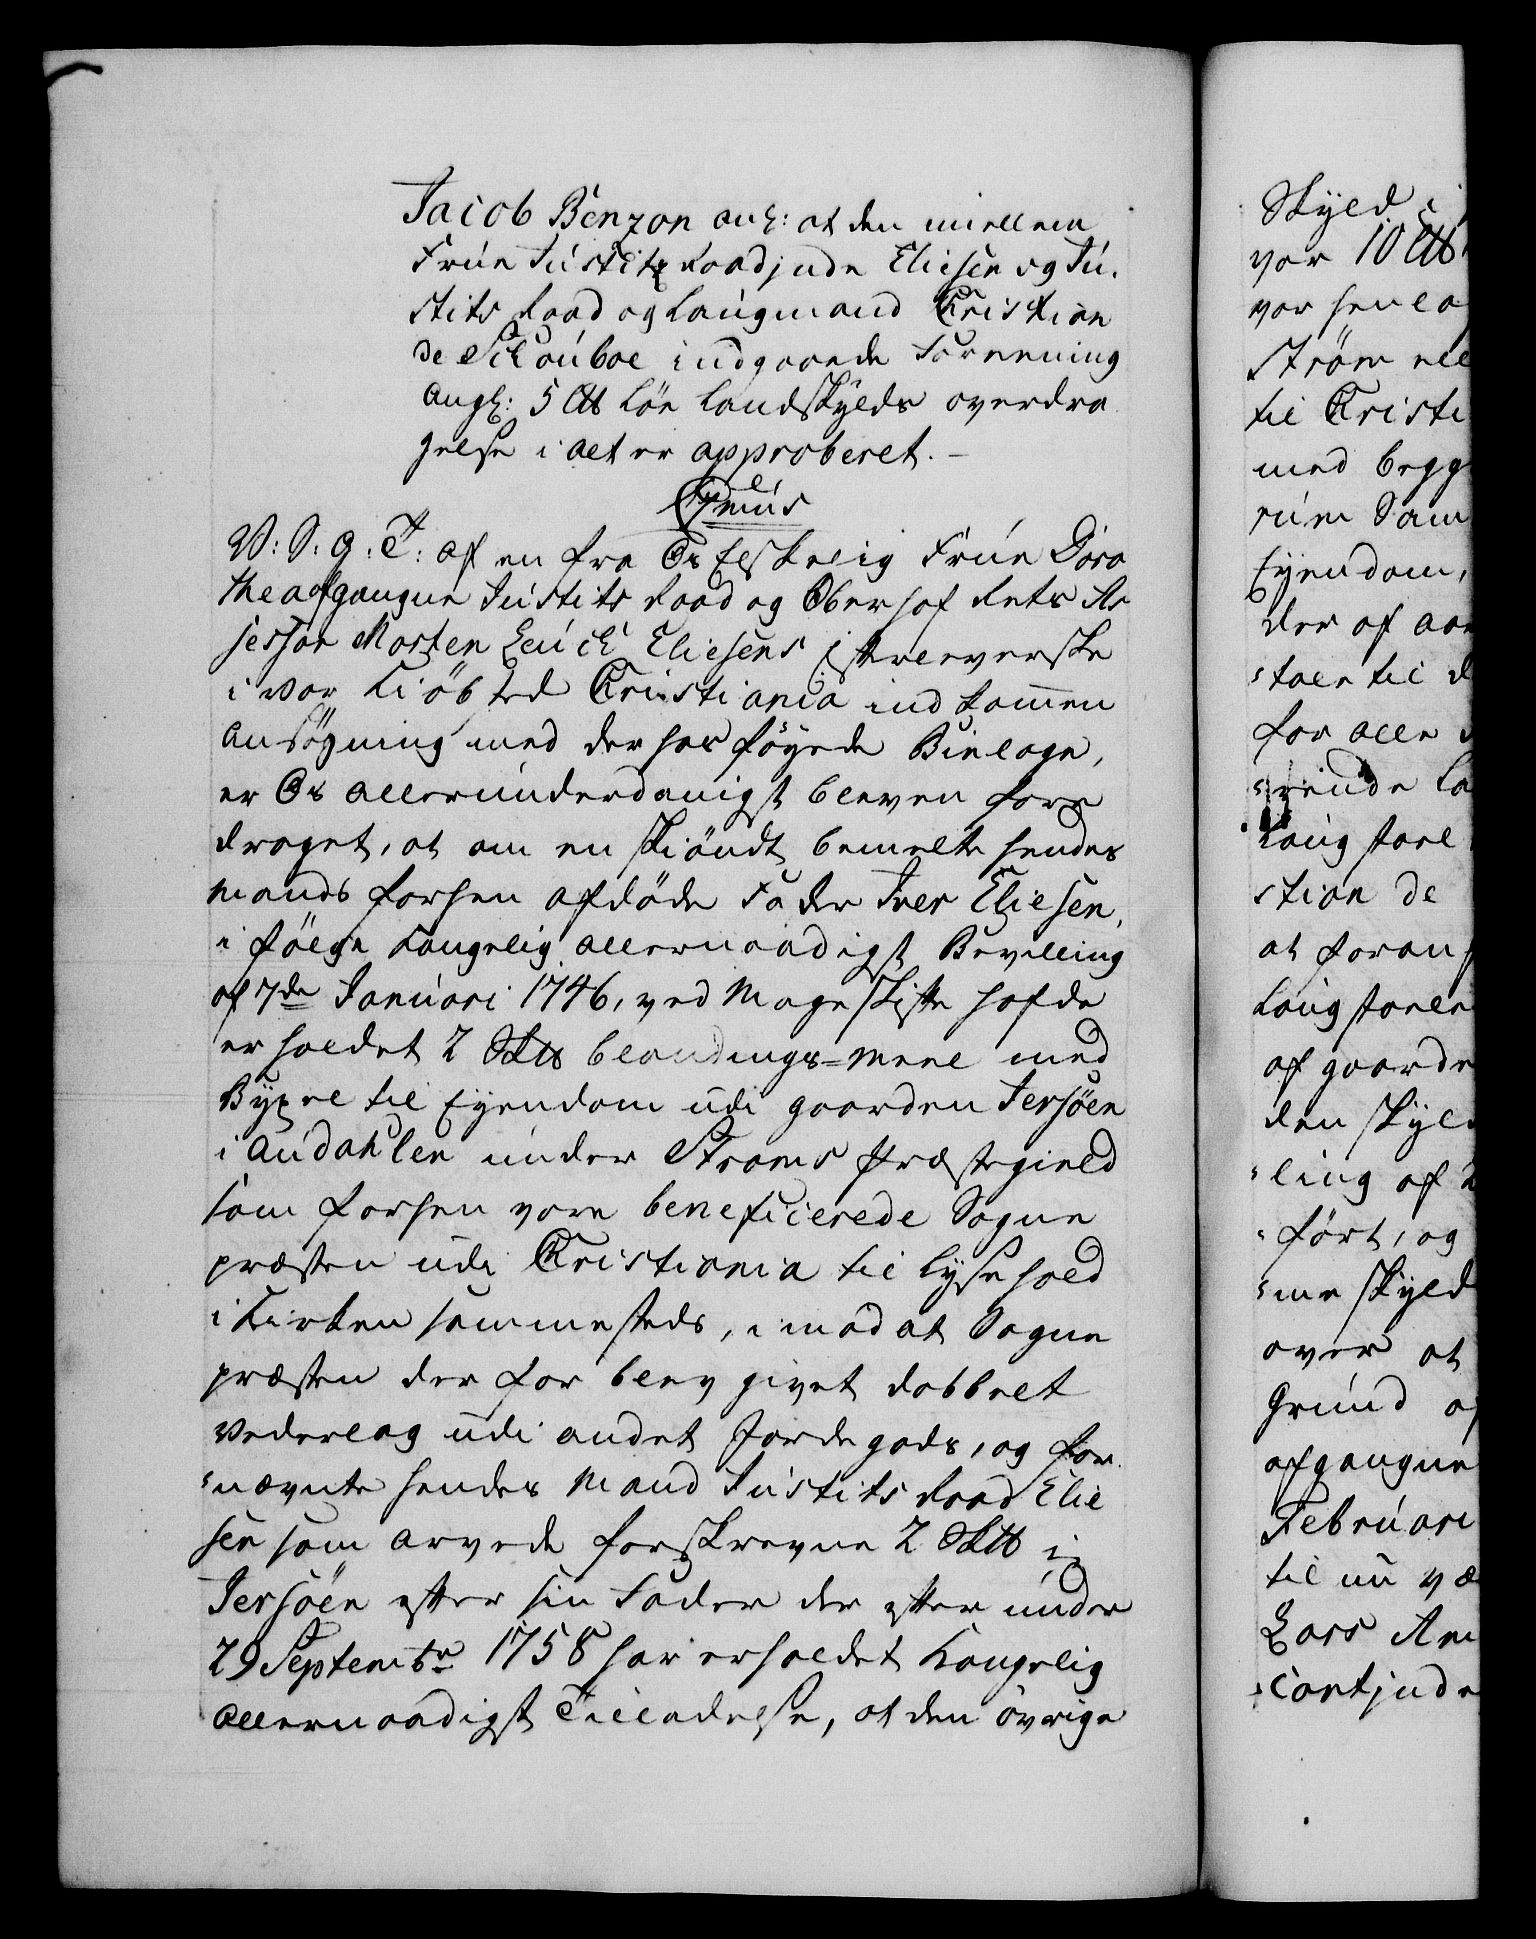 Jacob Benzon anl: at den imellem
Frue Justitz Raadinde Eliesen og Ju-
stits Raad og Laugmand Christian
de Schouboe indgaaede Forening
angl: 5 Lb Løn Landskylds overdra
gelse i alt er approberet. —
Gratis
V: S: G: T: af en fra Os Elskelig Frue Doro
thea afgangne Justits Raad og Oberhof Rets As
sessor Morten Leuch Eliesens Efterleverske
i vor Kiöbsted Christiania indkommen
Ansögning med der hos föyede Bielage,
er Os allerunderdanigst bleven fore
draget, at om en skiöndt bemelte hendes
Mands forhen afdöde Fader Iver Eliesen,
i fölge Kongelig allernaadigst Bevilling
af 7de Januari 1746, ved Mageskifte hafde
erholdet 2 Sk℔ blandings-Meel med
Byxel til Eyendom udi gaarden Jersöen
i Audahlen under Stroms Præstegield
som forhen vare beneficerede Sogne
præsten udi Christiania til Lysehold
i Kirken sammesteds, imod at Sogne
præsten der for blev givet dobbelt
Vederlag udi andet Jordegods, og for-
nævnte hendes Mand Justits Raad Elie
sen som arvede forskrevne 2 Sk℔ i
Jersöen efter sin Fader der efter under
29 Septembr 1758 har erholdet Kongelig
allernaadigst Tilladelse, at den övrige
Skyld i
var 10 Lb
var henla
Ström el
til Christi
med bygg
rum Sam
Eyendom,
der af aar
taler til d
for alle
rende La
Laug
stian de
at foran
Laug
af gaarde
den skyld
ling af 2
fört, og
me skyld
over at
Grund af
afgangne
Februari
til nu væ
Lars An
Contjude